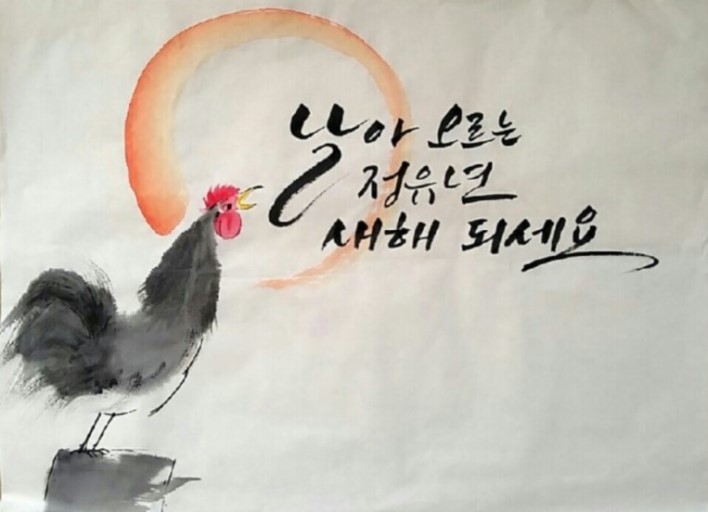 날아 오르는
정유년
새해 되세요